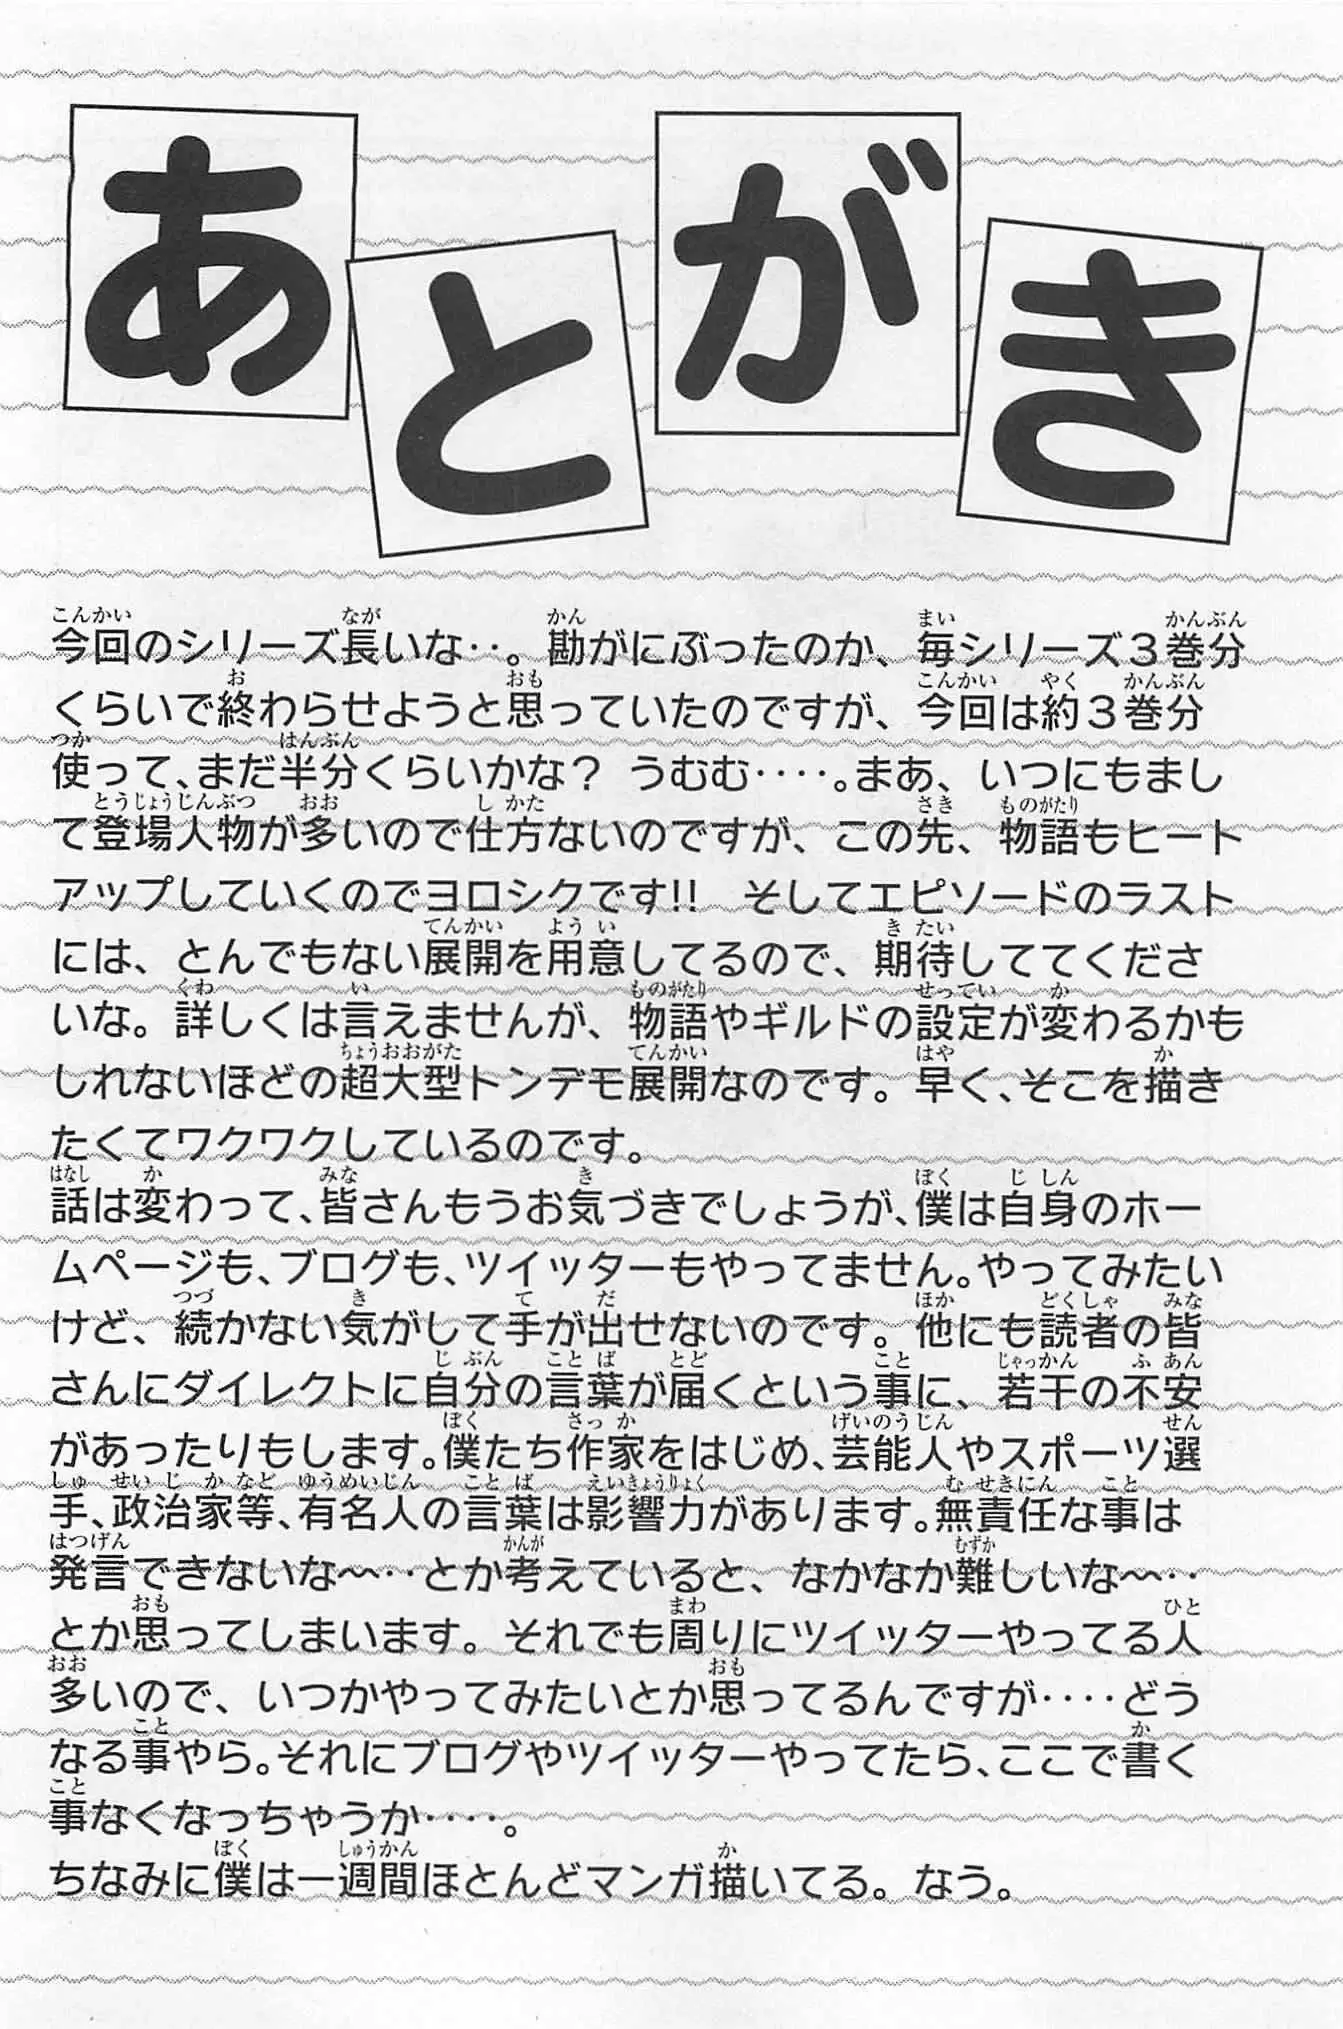 あとがき
今回のシリーズ長いな‥。勘がにぶったのか、毎シリーズ３巻分
くらいで終わらせようと思っていたのですが、今回は約３巻分
使って、まだ半分くらいかな？　うむむ‥‥。まあ、いつにもまし
て登場人物が多いので仕方ないのですが、この先、物語もヒート
アップしていくのでヨロシクです!!　そしてエピソードのラスト
には、とんでもない展開を用意してるので、期待しててくださ
いな。詳しくは言えませんが、物語やギルドの設定が変わるかも
しれないほどの超大型トンデモ展開なのです。早く、そこを描き
たくてワクワクしているのです。
話は変わって、皆さんもうお気づきでしょうが、僕は自身のホー
ムページも、ブログも、ツイッターもやってません。やってみたい
けど、続かない気がして手が出せないのです。他にも読者の皆
さんにダイレクトに自分の言葉が届くという事に、若干の不安
があったりもします。僕たち作家をはじめ、芸能人やスポーツ選
手、政治家等、有名人の言葉は影響力があります。無責任な事は
発言できないな〜‥とか考えていると、なかなか難しいな〜‥
とか思ってしまいます。それでも周りにツイッターやってる人
多いので、いつかやってみたいとか思ってるんですが‥‥どう
なる事やら。それにブログやツイッターやってたら、ここで書く
事なくなっちゃうか‥‥。
ちなみに僕は一週間ほとんどマンガ描いてる。なう。